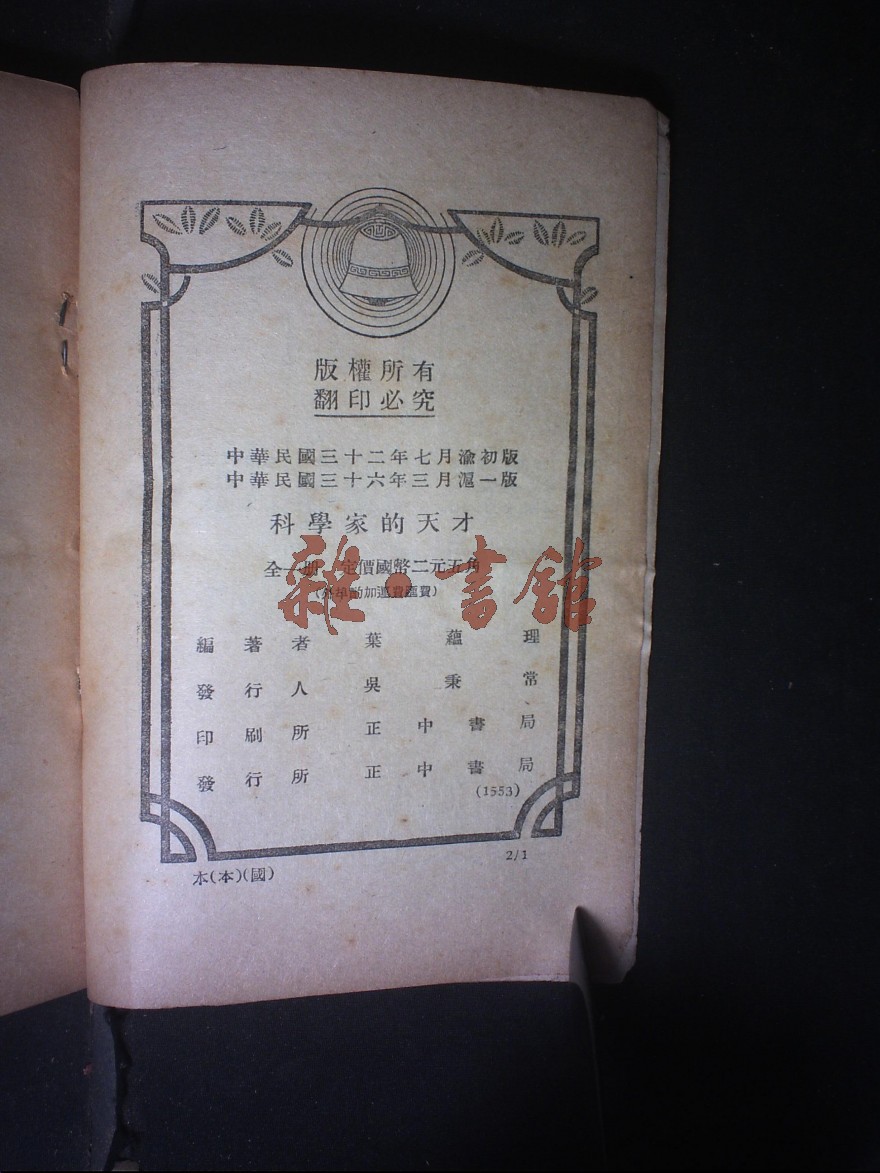 版權所有
翻印必究
中華民國三十二年七月渝初版
中華民國三十六年三月滬一版
科學家的天才
全一册 定價國幣二元五角
(外埠酌加運費匯費)
雜·書館
編著者 葉蘊理
發行人 吳秉常
印刷所 正中書局
發行所 正中書局
(1553)
2/1
本(本)(國)